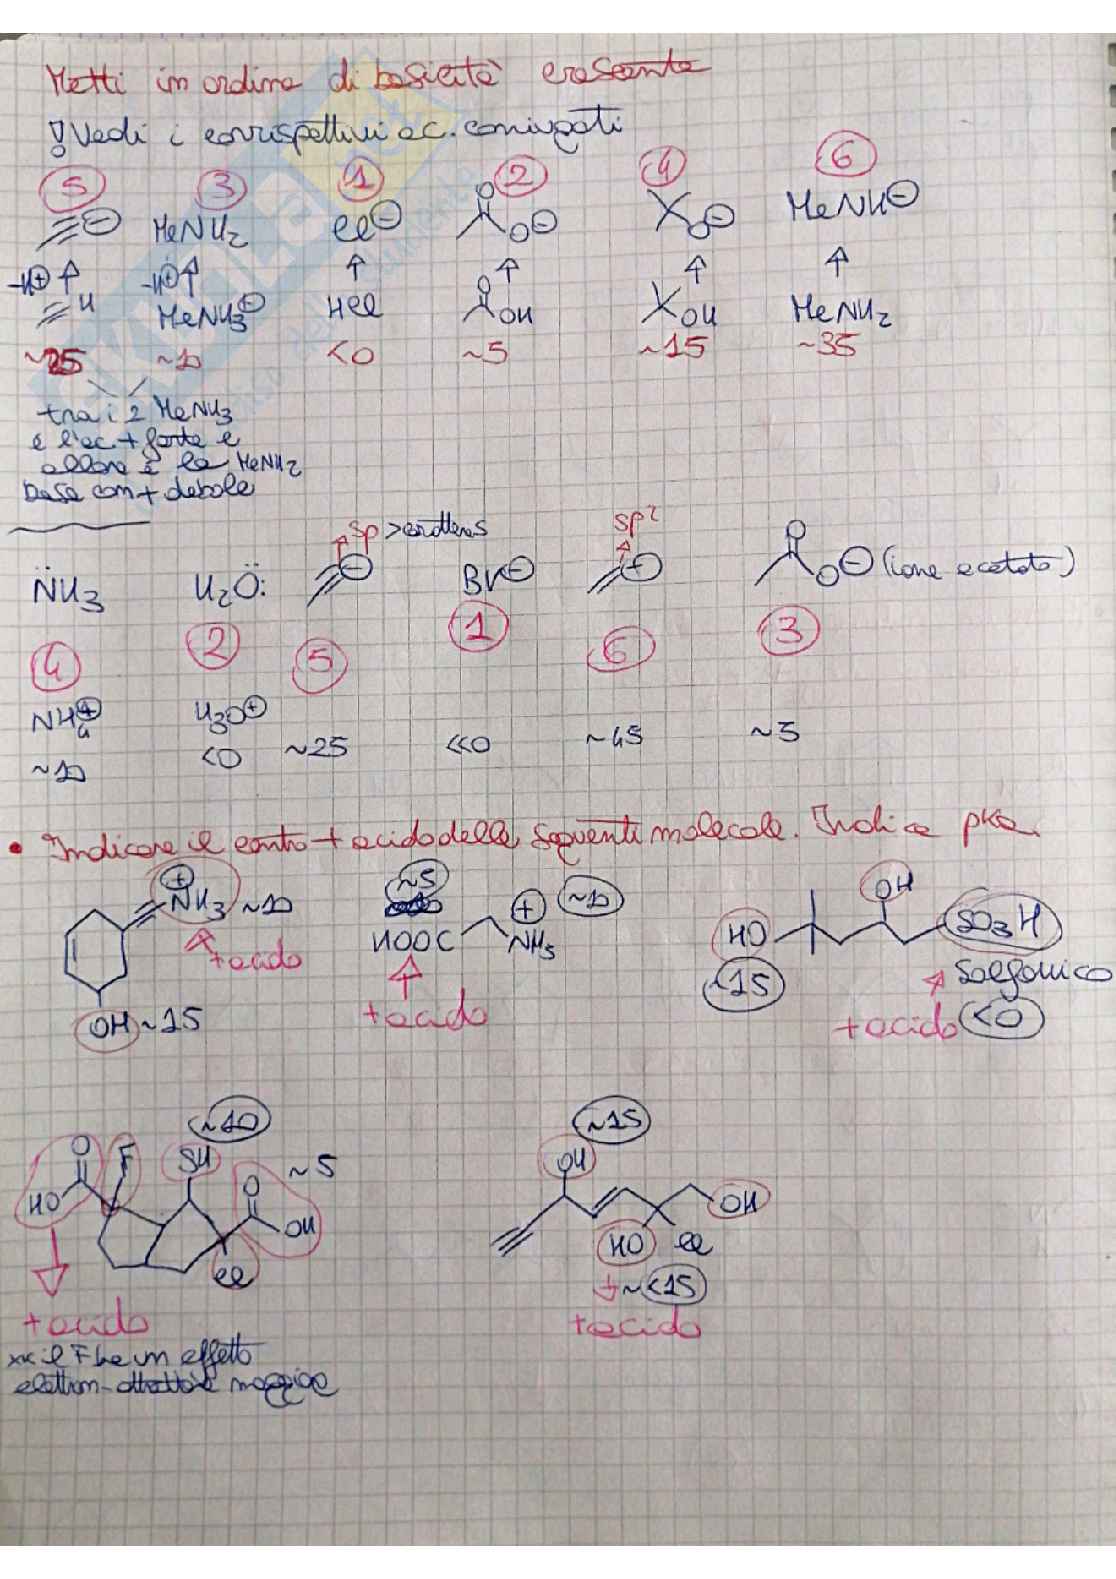 Metti in ordine di basicità crescente
! Vedi i corrispettivi ac. coniugati
5 3 1 2 4 6
⊖ MeNH2 Cl⊖ O O⊖ O⊖ MeNH⊖
-H⊕ ↑ -H⊕ ↑ ↑ ↑ ↑ ↑
H MeNH3⊕ HCl O OH OH MeNH2
~25 ~10 <0 ~5 ~15 ~35
tra i 2 MeNH3
è l'ac. + forte e
allora è la MeNH2
base con + debole
sp > carattere s sp2
NH3 H2O: ⊖ Br⊖ ⊕ O O⊖ (ione acetato)
4 2 5 1 6 3
NH4⊕ H3O⊕
~10 <0 ~25 <<0 ~45 ~5
• Indicare il centro + acido delle seguenti molecole. Indica pka.
⊕NH3 ~10
+ acido
OH ~15
~5 ⊕ ~10
HOOC NH3
+ acido
OH
HO SO3H
~15 Solfonico
+ acido <0
~10
O F SH O ~5
HO OH
Cl
+ acido
xk il F ha un effetto
elettron-attrattore maggiore
~15
OH
OH
HO Cl
~<15
+ acido